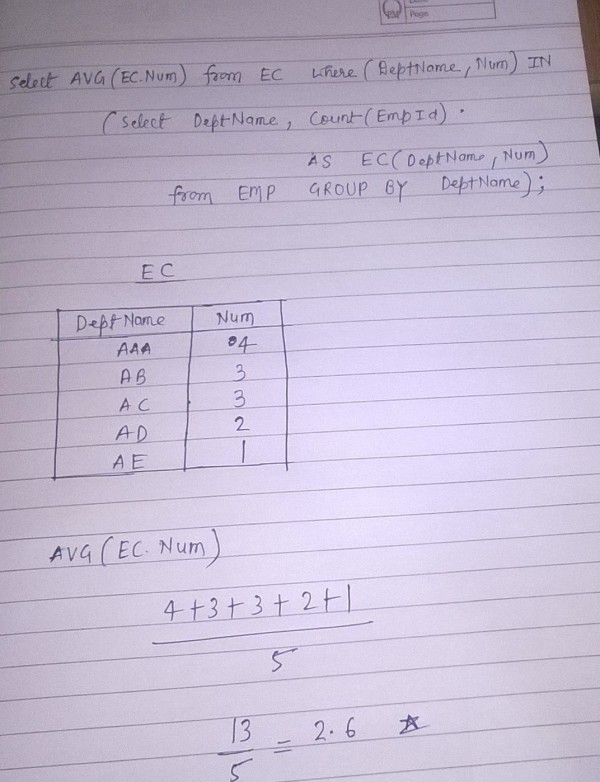 Page
Select AVG (EC.Num) from EC where (DeptName, Num) IN
(Select DeptName, Count(EmpId)
AS EC(DeptName, Num)
from EMP GROUP BY DeptName);
EC
DeptName Num
AAA 04
AB 3
AC 3
AD 2
AE 1
AVG (EC.Num)
4+3+3+2+1
5
13
5 = 2.6